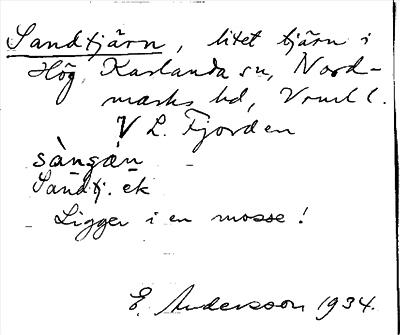 Sandtjärn, litet tjärn i
Hög, Karlanda sn, Nord-
marks hd, Vrml l.
V L. Fjorden
sàngǽn
Sandtj. ek
Ligger i en mosse!
E. Andersson 1934.